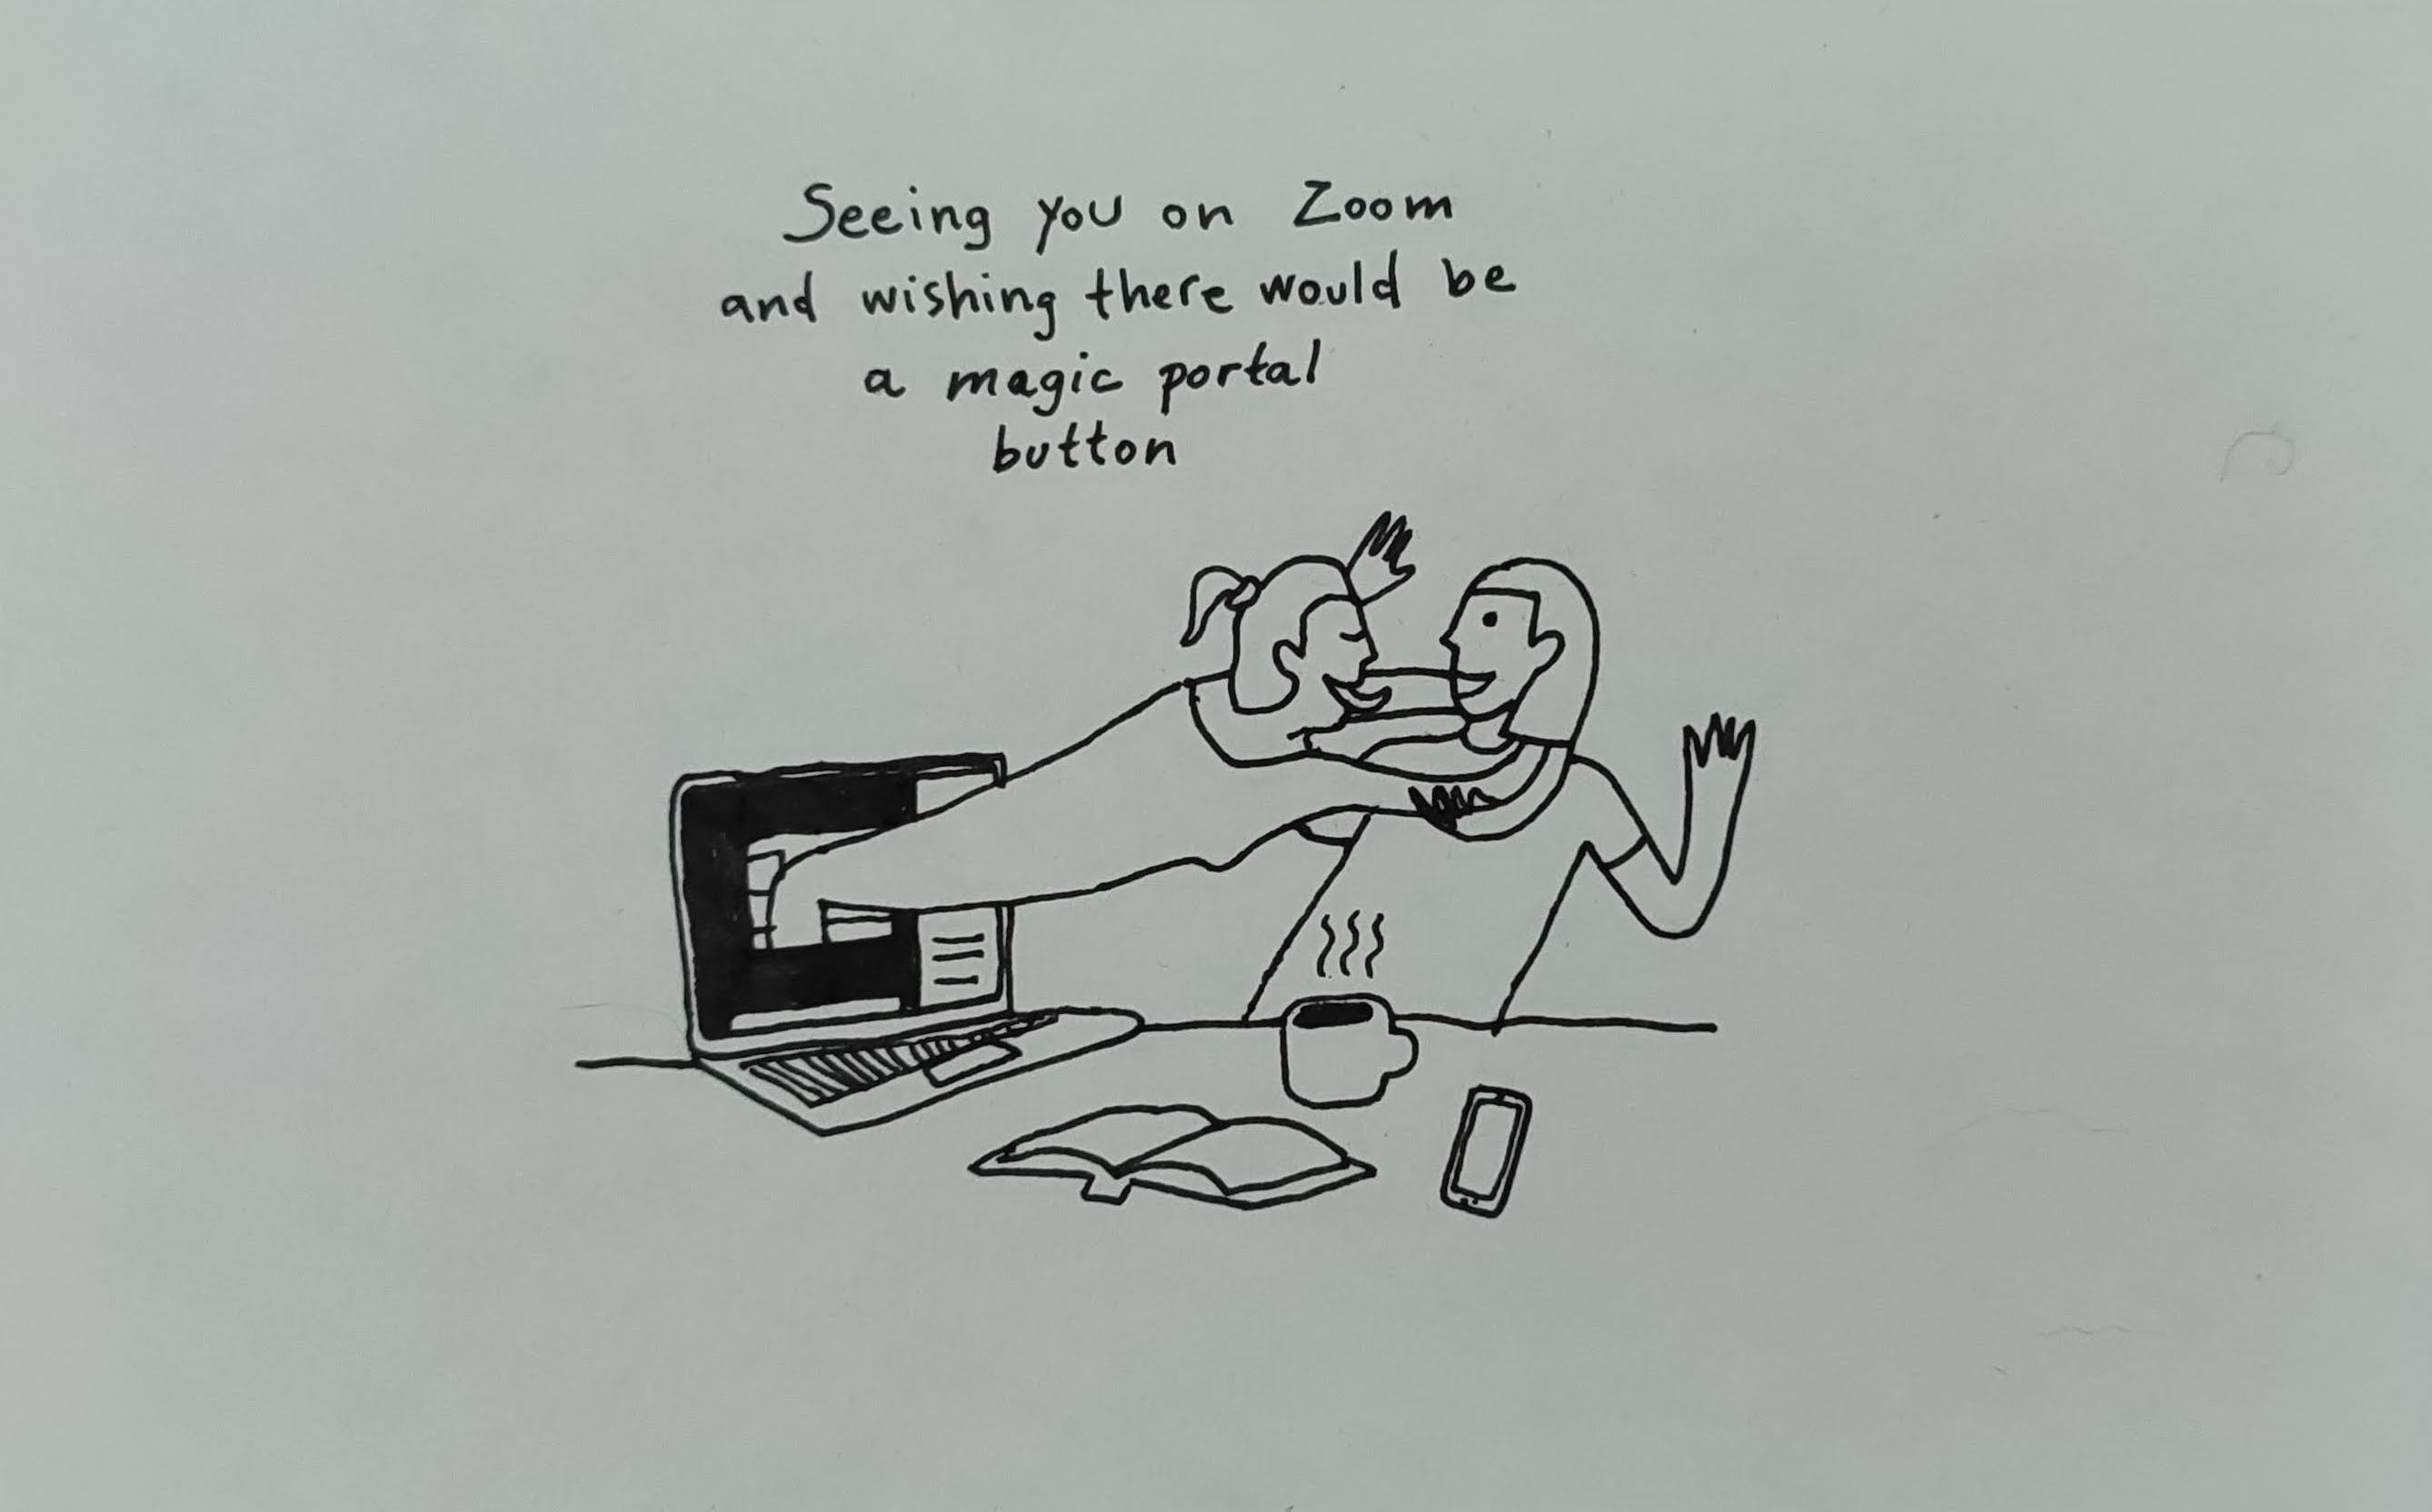 Seeing you on Zoom
and wishing there would be
a magic portal
button